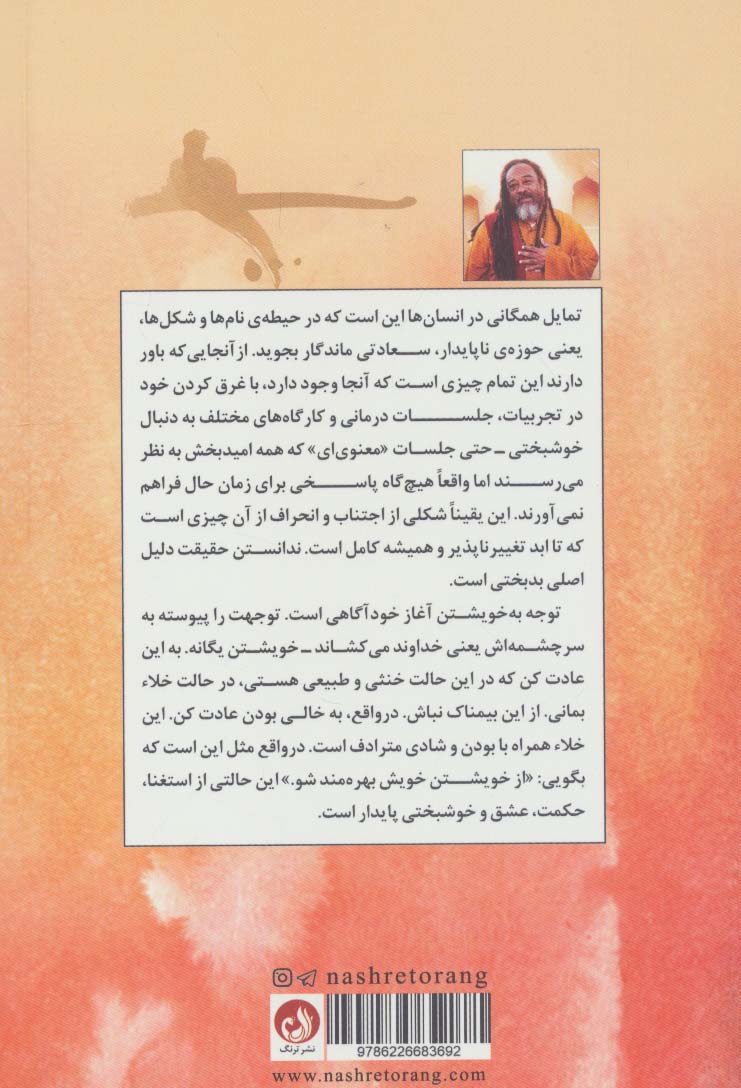 تمایل همگانی در انسان‌ها این است که در حیطه‌ی نام‌ها و شکل‌ها،
یعنی حوزه‌ی ناپایدار، سعادتی ماندگار بجوید. از آنجایی‌که باور
دارند این تمام چیزی است که آنجا وجود دارد، با غرق کردن خود
در تجربیات، جلسات درمانی و کارگاه‌های مختلف به دنبال
خوشبختی ـ حتی جلسات «معنوی‌ای» که همه امیدبخش به نظر
می‌رسند اما واقعاً هیچ‌گاه پاسخی برای زمان حال فراهم
نمی‌آورند. این یقیناً شکلی از اجتناب و انحراف از آن چیزی است
که تا ابد تغییرناپذیر و همیشه کامل است. ندانستن حقیقت دلیل
اصلی بدبختی است.
توجه به‌خویشتن آغاز خودآگاهی است. توجهت را پیوسته به
سرچشمه‌اش یعنی خداوند می‌کشاند ـ خویشتن یگانه. به این
عادت کن که در این حالت خنثی و طبیعی هستی، در حالت خلاء
بمانی. از این بیمناک نباش. درواقع، به خالی بودن عادت کن. این
خلاء همراه با بودن و شادی مترادف است. درواقع مثل این است که
بگویی: «از خویشتن خویش بهره‌مند شو.» این حالتی از استغنا،
حکمت، عشق و خوشبختی پایدار است.
nashretorang
نشر ترنگ
9786226683692
www.nashretorang.com